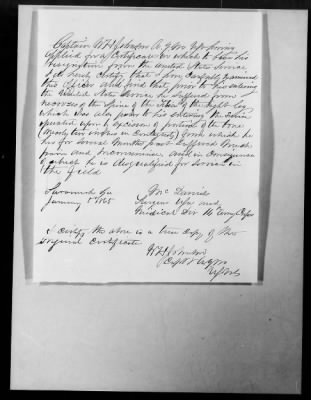 Captain W H Johnson A.Q.M. U.S. having
applied for a Certificate on which to base his
resignation from the United States Service
I do hereby Certify that I am Carefully Examined
this Officer and find that prior to his entering
the United States Service he suffered from
necrosis of the Spine of the Tibia of the right leg
which was also prior to his entering the Service
operated upon & excision of portion of the bone
(nearly two inches in Contiguity) from which he
has for Several Months past Suffered much
pain and Inconvenience and in Consequence
of which he is disqualified for Service in
the field
Savannah Ga Jno. David
January 1865 Surgeon USV and
Medical Dir 14 Army Corps
I certify the above is a true copy of the
original certificate
W H Johnson
Capt & AQM
U.S. Vols